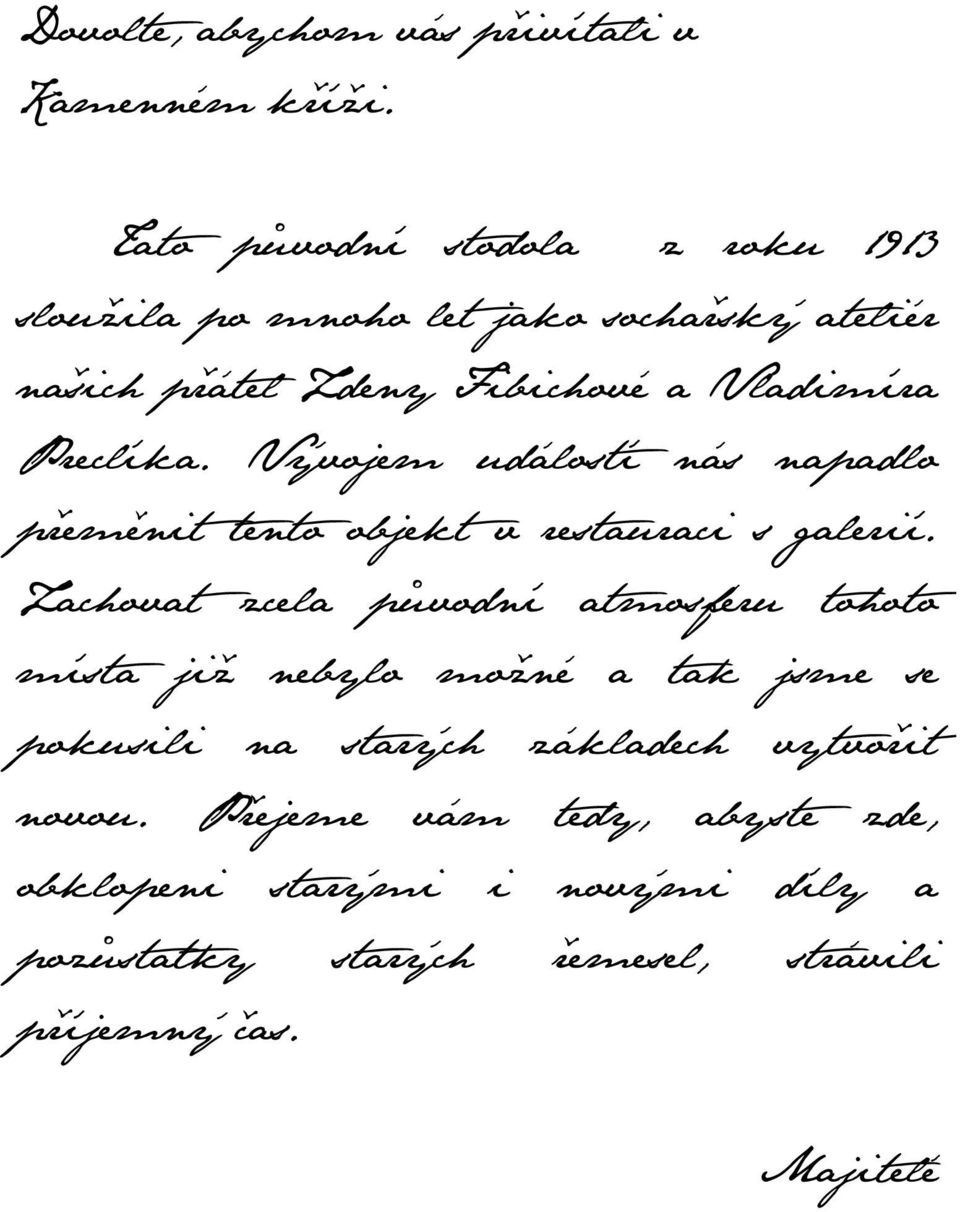 Dovolte, abychom vás přivítali v
Kamenném kříži.
Tato původní stodola z roku 1913
sloužila po mnoho let jako sochařský ateliér
našich přátel Zdeny Fibichové a Vladimíra
Preclíka. Vývojem událostí nás napadlo
přeměnit tento objekt v restauraci s galerií.
Zachovat zcela původní atmosféru tohoto
místa již nebylo možné a tak jsme se
pokusili na starých základech vytvořit
novou. Přejeme vám tedy, abyste zde,
obklopeni starými i novými díly a
pozůstatky starých řemesel, strávili
příjemný čas.
Majitelé